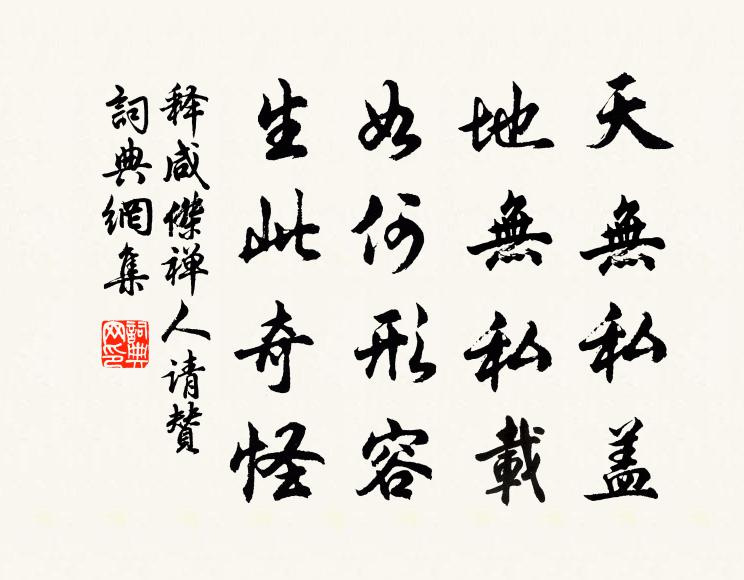 天無私盖
地無私載
如何形容
生此奇怪
释咸傑禅人请贊
詞典網集
詞典網印